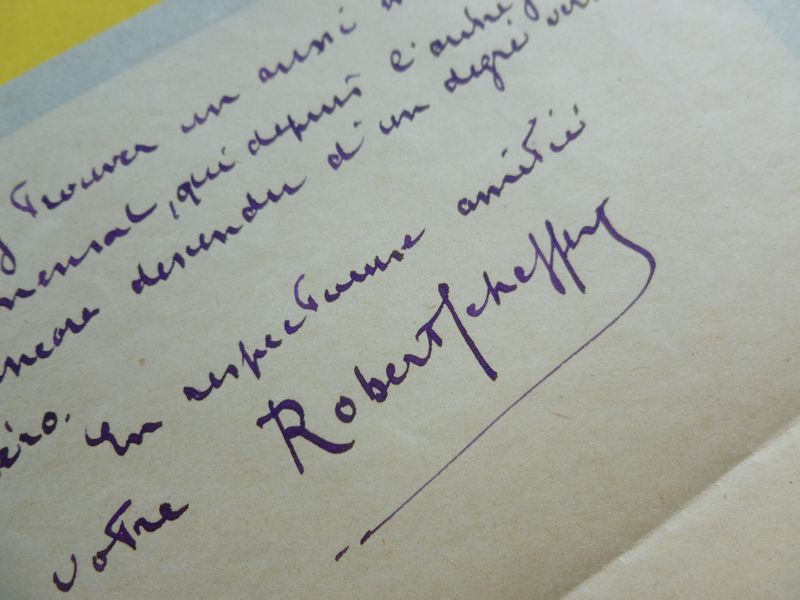 trouver un aussi
mensal, qui depuis l'autre
encore descendu d'un degré vers
éro.
En respectueuse amitié
votre Robert Scheffer